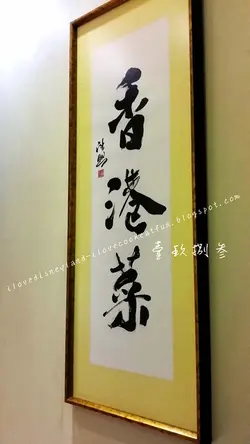 香港菜
ilovedisneyland-ilovecookeatfun.blogspot.com
壹玖捌叁